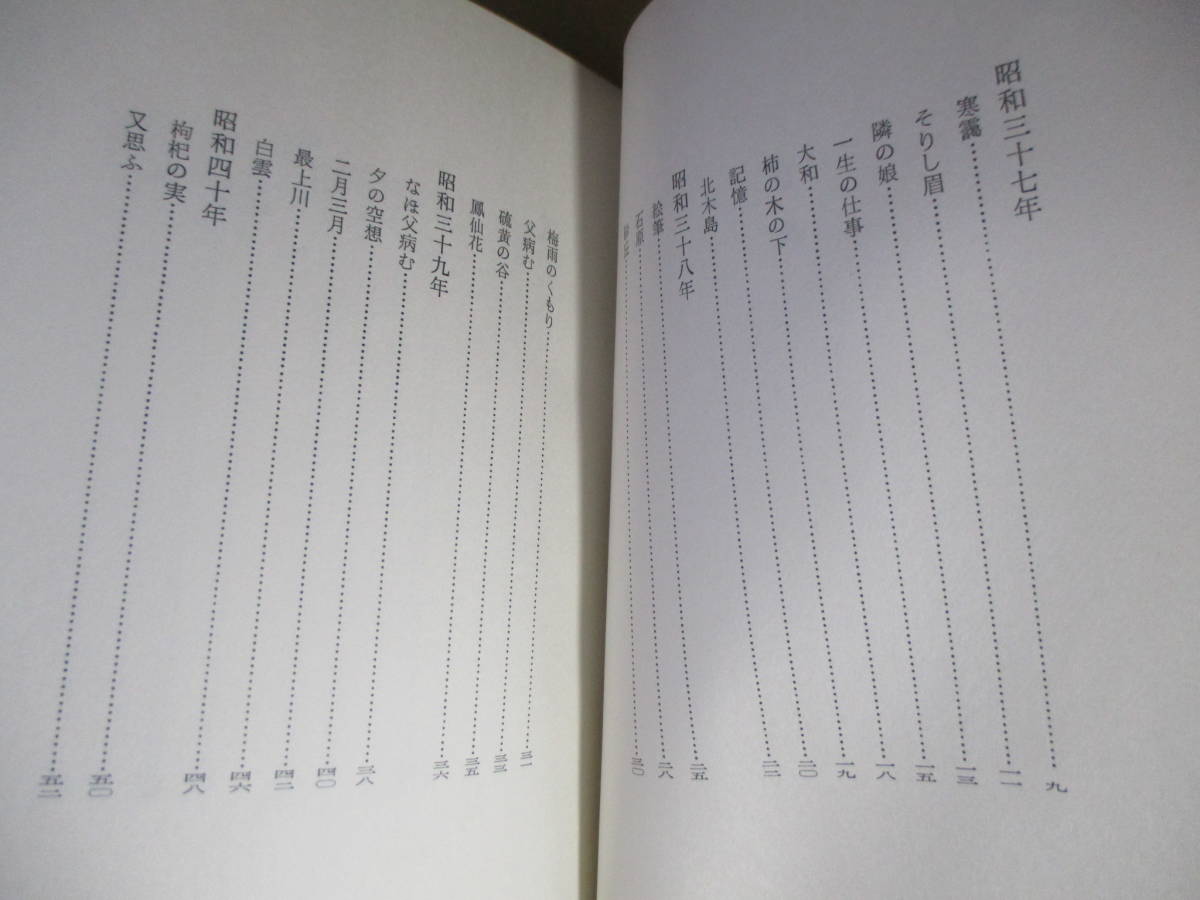 昭和三十七年
寒靄…………九
そりし眉…………一一
隣の娘…………一三
一生の仕事…………一五
大和…………一八
柿の木の下…………一九
記憶…………二〇
北木島…………二二
昭和三十八年
絵筆…………二五
石原…………二八
…………三〇
梅雨のくもり…………三一
父病む…………三三
硫黄の谷…………三五
鳳仙花…………三六
昭和三十九年
なほ父病む…………三八
夕の空想…………四〇
二月三月…………四二
最上川…………四六
白雲…………四八
昭和四十年
枸杞の実…………五〇
又思ふ…………五二